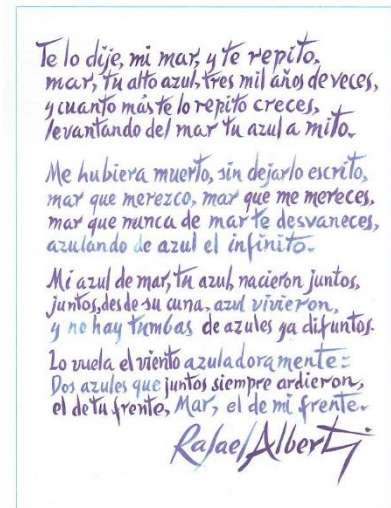 Te lo dije, mi mar, y te repito,
mar, tu alto azul, tres mil años de veces,
y cuanto más te lo repito creces,
levantando del mar tu azul a mito.
Me hubiera muerto, sin dejarlo escrito,
mar que merezco, mar que me mereces,
mar que nunca de mar te desvaneces,
azulando de azul el infinito.
Mi azul de mar, tu azul, nacieron juntos,
juntos, desde su cuna, azul vivieron,
y no hay tumbas de azules ya difuntos.
Lo vuela el viento azuladoramente:
Dos azules que juntos siempre ardieron,
el de tu frente, Mar, el de mi frente.
Rafael Alberti